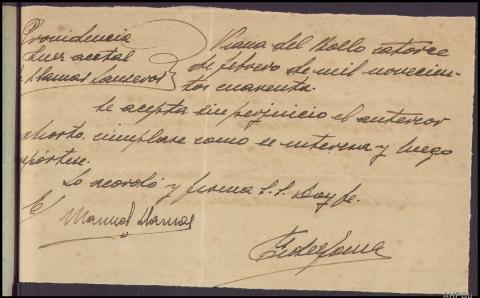 Providencia
Juez acctal
Llamas
Viana del Bollo catorce
de febrero de mil novecien-
tos cuarenta.
Se acepta sin perjuicio el anterior
exhorto, cúmplase como se interesa y luego
repórtese.
Lo acordó y firma S.S. Doy fe.
E/
Manuel Llamas